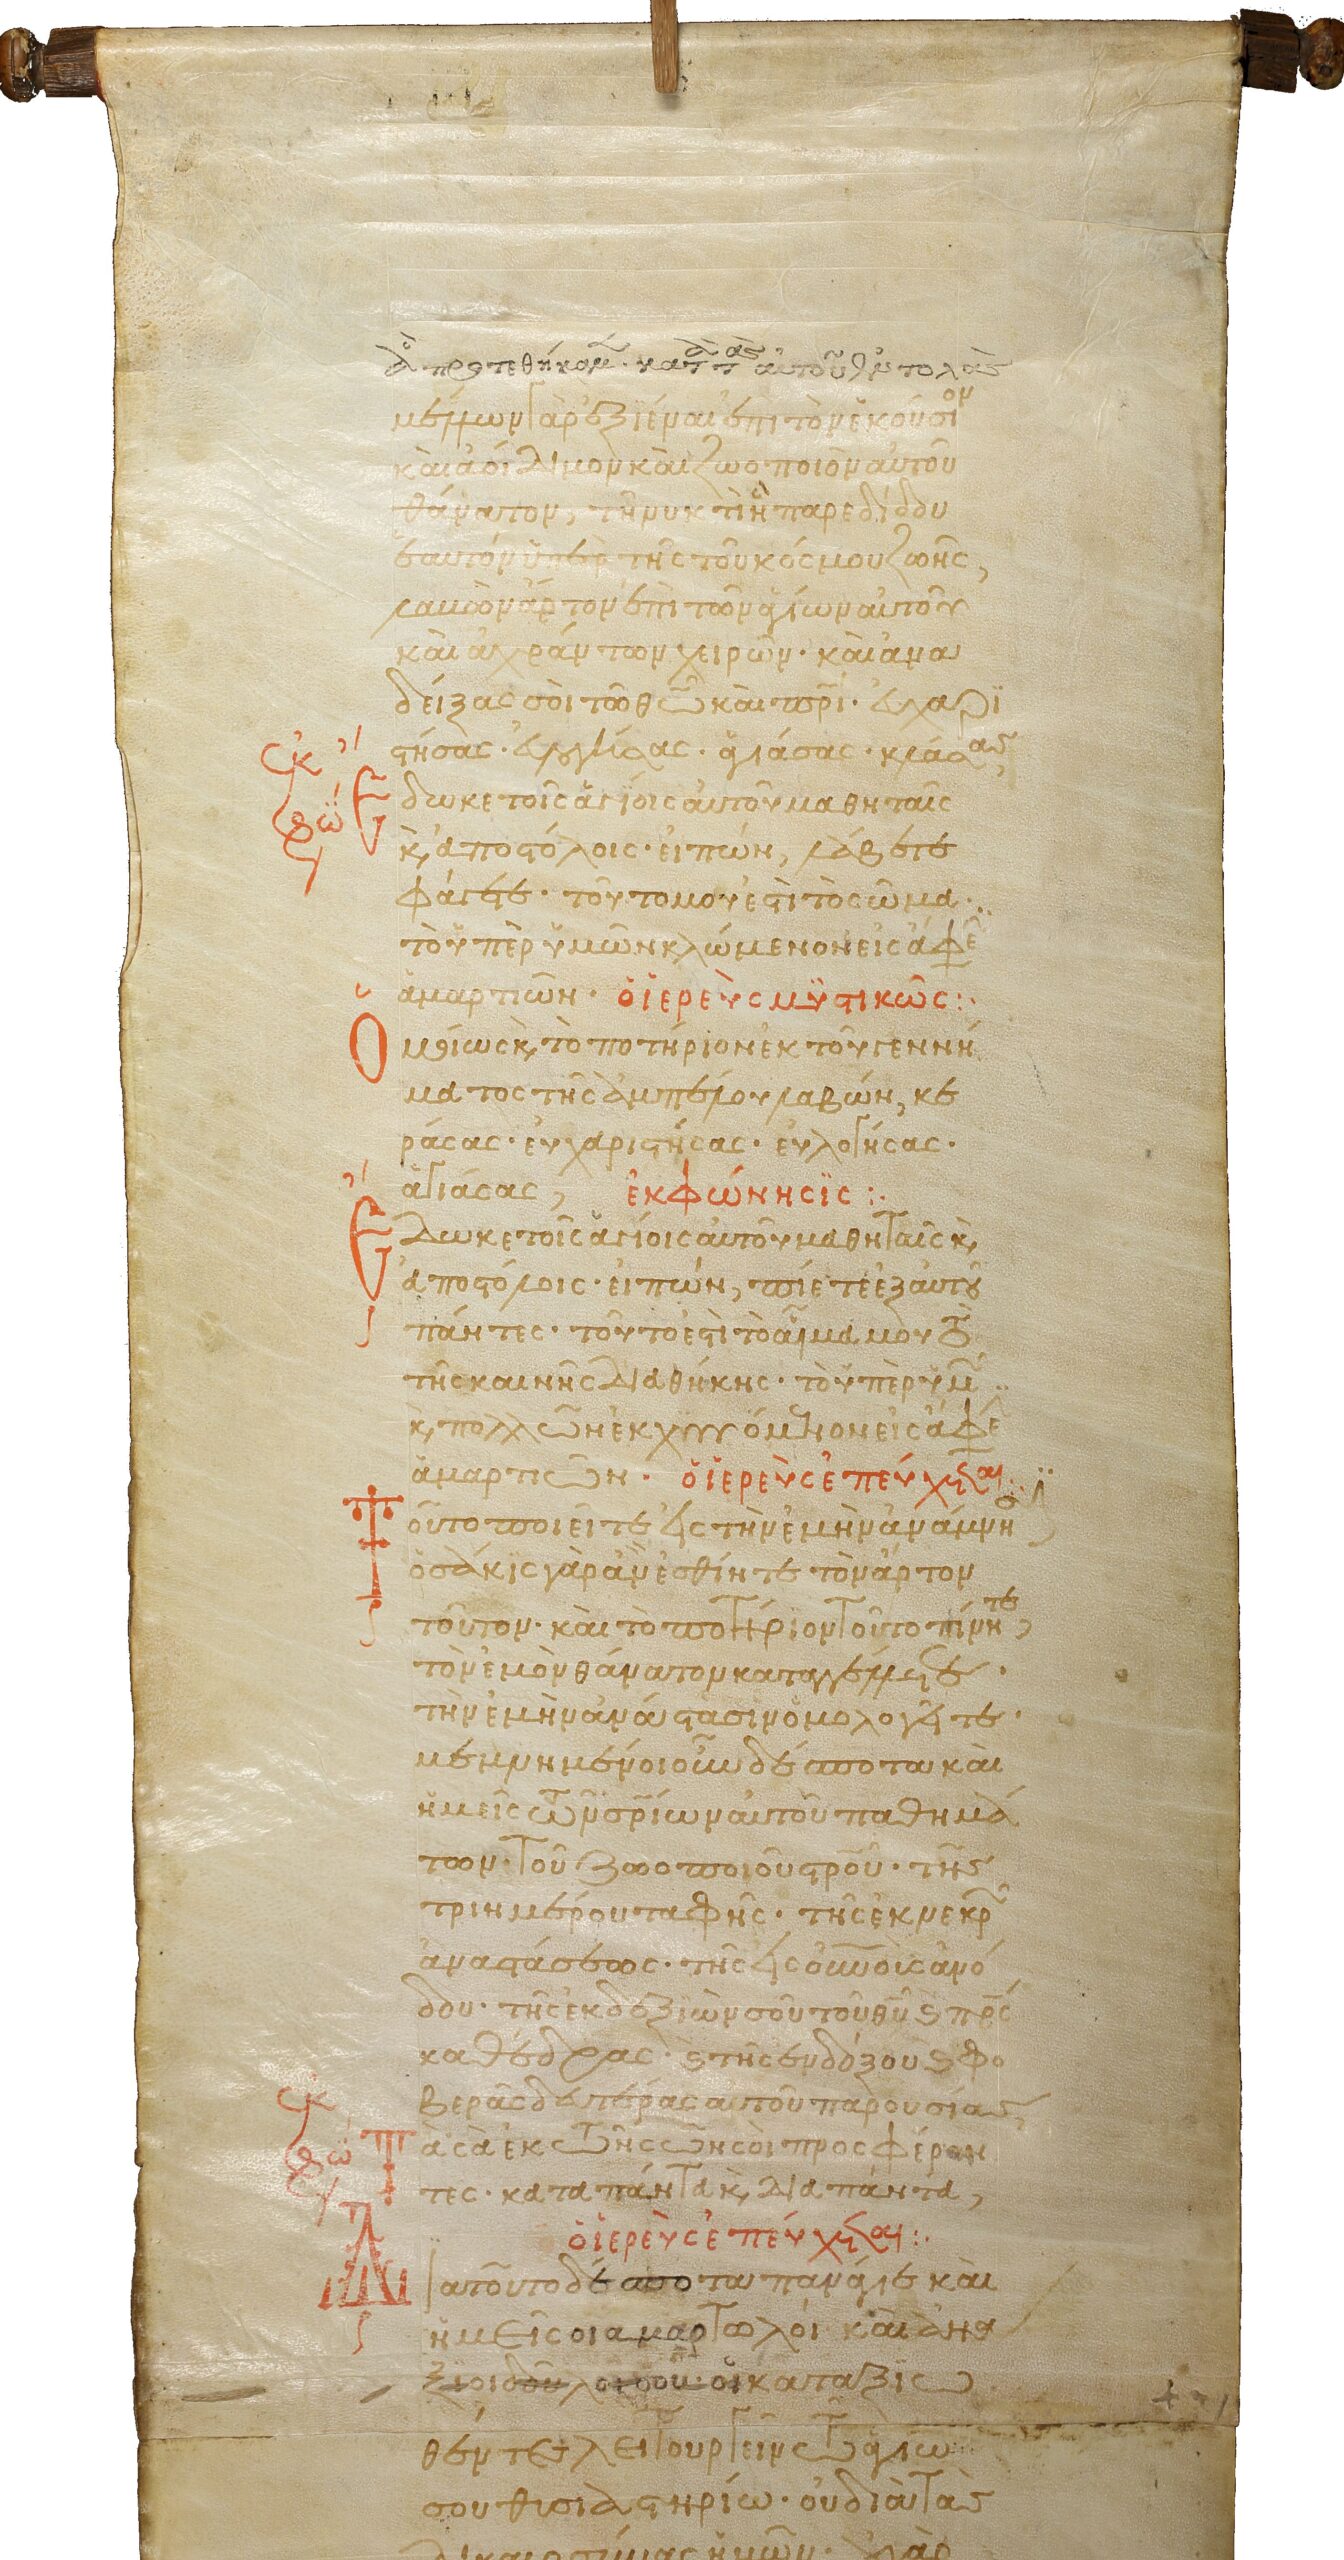 ἃ προτεθήκαμεν κατὰ τὰς αὐτοῦ ἐντολάς
μέλλων γὰρ ἐξιέναι ἐπὶ τὸν ἑκούσιον
καὶ ἀοίδιμον καὶ ζωοποιὸν αὐτοῦ
θάνατον, τῇ νυκτὶ ᾗ παρεδίδου
ἑαυτὸν ὑπὲρ τῆς τοῦ κόσμου ζωῆς,
λαβὼν ἄρτον ἐπὶ τῶν ἁγίων αὐτοῦ
καὶ ἀχράντων χειρῶν· καὶ ἀνα
δείξας σοὶ τῶ θ̅ω̅ καὶ π̅ρ̅ι̅· εὐχαρι
στήσας· εὐλογήσας· ἁγιάσας· κλάσας,
ἐκφώ
Ἔδωκε τοῖς ἁγίοις αὐτοῦ μαθηταῖς
κ, ἀποστόλοις· εἰπών, λάβετε
φάγετε· τοῦτο μου ἐστὶ τὸ σῶμα·
τὸ ὑπὲρ ὑμῶν κλώμενον εἰς ἄφε
ἁμαρτιῶν· ὁ ἱερεὺς μυστικῶς:·
Ὁμοίως κ, τὸ ποτήριον ἐκ τοῦ γεννή
ματος τῆς ἀμπέλου λαβών, κε
ράσας· εὐχαριστήσας· εὐλογήσας·
ἁγιάσας, ἐκφώνησϊς:·
Ἔδωκε τοῖς ἁγίοις αὐτοῦ μαθηταῖς κ,
ἀποστόλοις· εἰπών, πίετε ἐξ αὐτοῦ
πάντες· τοῦτο ἐστὶ τὸ αἷμα μου τὸ
τῆς καινῆς διαθήκης· τὸ ὑπὲρ ὑμῶν
κ, πολλῶν ἐκχυνόμενον εἰς ἄφε
ἁμαρτιῶν· ὁ ἱερεὺς ἐπεύχεται:
Τοῦτο ποιεῖτε εἰς τὴν ἐμὴν ἀνάμνησϊ,
ὁσάκϊς γὰρ ἂν ἐσθίητε τὸν ἄρτον
τοῦτον· καὶ τὸ ποτήριον τοῦτο πίνητε,
τὸν ἐμὸν θάνατον καταγγέλλετε·
τὴν ἐμὴν ἀνάστασιν ὁμολογεῖτε·
μεμνημένοι οὖν δέσποτα καὶ
ἡμεῖς τῶν σ̅ρ̅ίων αὐτοῦ παθημά
των· τοῦ ζωοποιοῦ σ̅ρ̅οῦ· τῆς
τριημέρου ταφῆς· τῆς ἐκ νεκρῶν
ἀναστάσεως· τῆς εἰς οὐ̅νοὺς ἀνό
δου· τῆς ἐκ δεξιῶν σοῦ τοῦ θ̅υ̅ ϛ π̅ρ̅ς
καθέδρας· ϛ τῆς ἐνδόξου ϛ φο
βερᾶς δευτέρας αὐτοῦ παρουσίας,
ἐκφώ
Τὰ σὰ ἐκ τῶν σῶν σοὶ προσφέρον
τες· κατὰ πάντα κ, διὰ πάντα,
ὁ ἱερεὺς ἐπεύχεται:·
Διὰ τοῦτο δέσποτα πανάγιε καὶ
ἡμεῖς οἱ ἁμαρτωλοὶ καὶ ἀνά
ξιοι δοῦλοί σου· οἱ καταξιω
θέντες λειτουργεῖν τῶ ἁγίω
σου θυσιαστηρίω· οὐ διὰ τὰς
δικαιοσύνας ἡμῶν· οὐ γὰρ